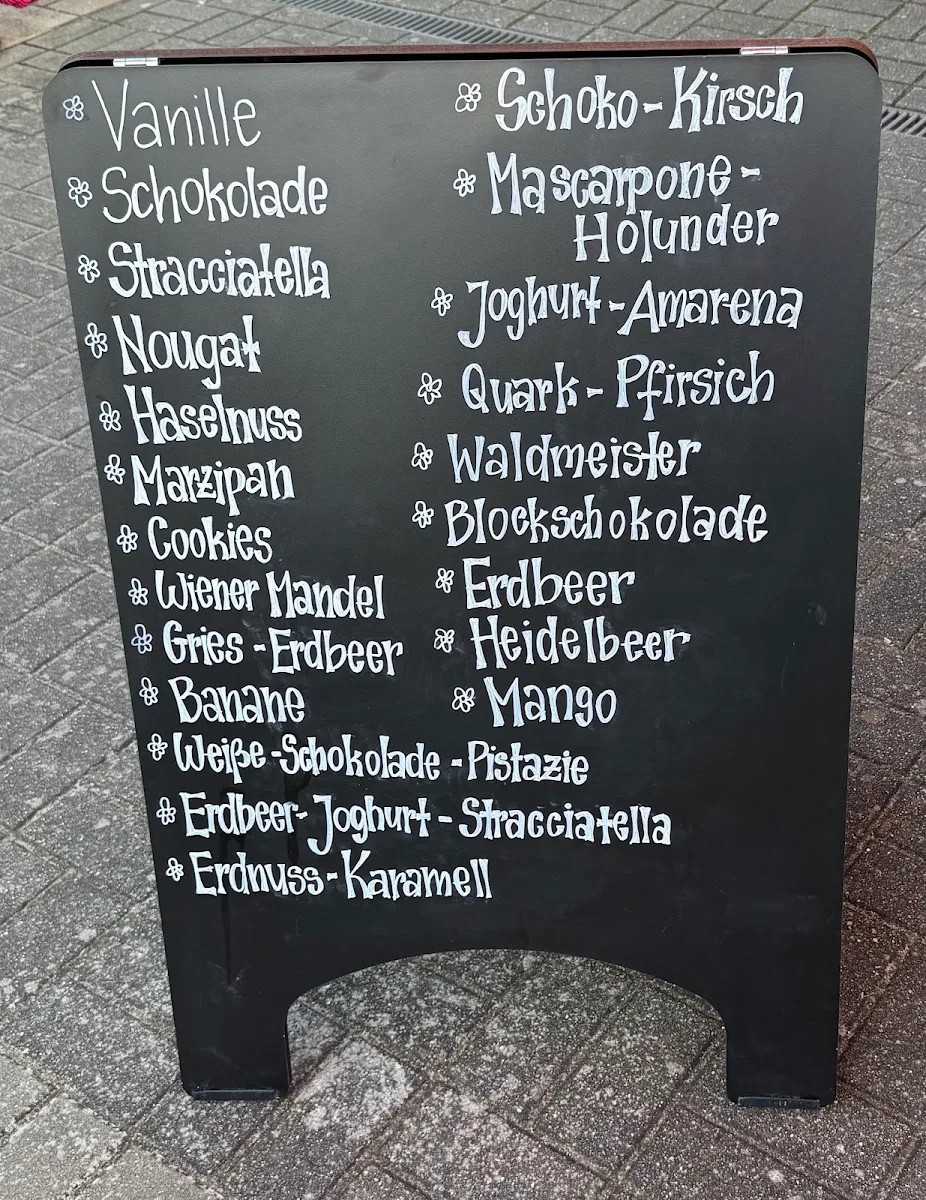 Vanille
Schokolade
Stracciatella
Nougat
Haselnuss
Marzipan
Cookies
Wiener Mandel
Gries-Erdbeer
Banane
Weiße-Schokolade-Pistazie
Erdbeer-Joghurt-Stracciatella
Erdnuss-Karamell
Schoko-Kirsch
Mascarpone-
Holunder
Joghurt-Amarena
Quark-Pfirsich
Waldmeister
Blockschokolade
Erdbeer
Heidelbeer
Mango